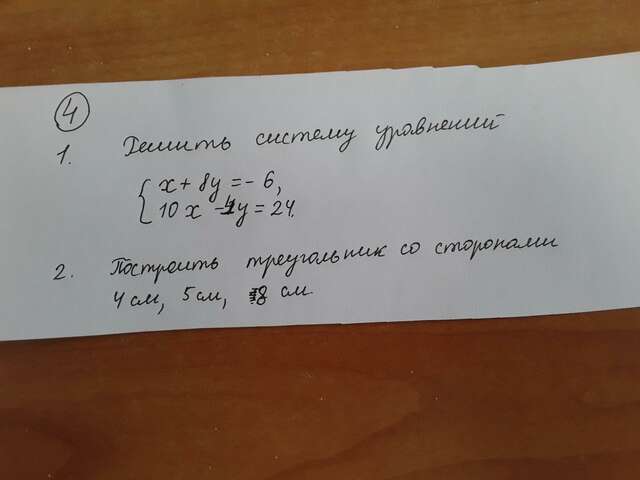 4
1. Решить систему уравнений
x + 8y = - 6,
10x - 4y = 24.
2. Построить треугольник со сторонами
4 см, 5 см, 8 см.